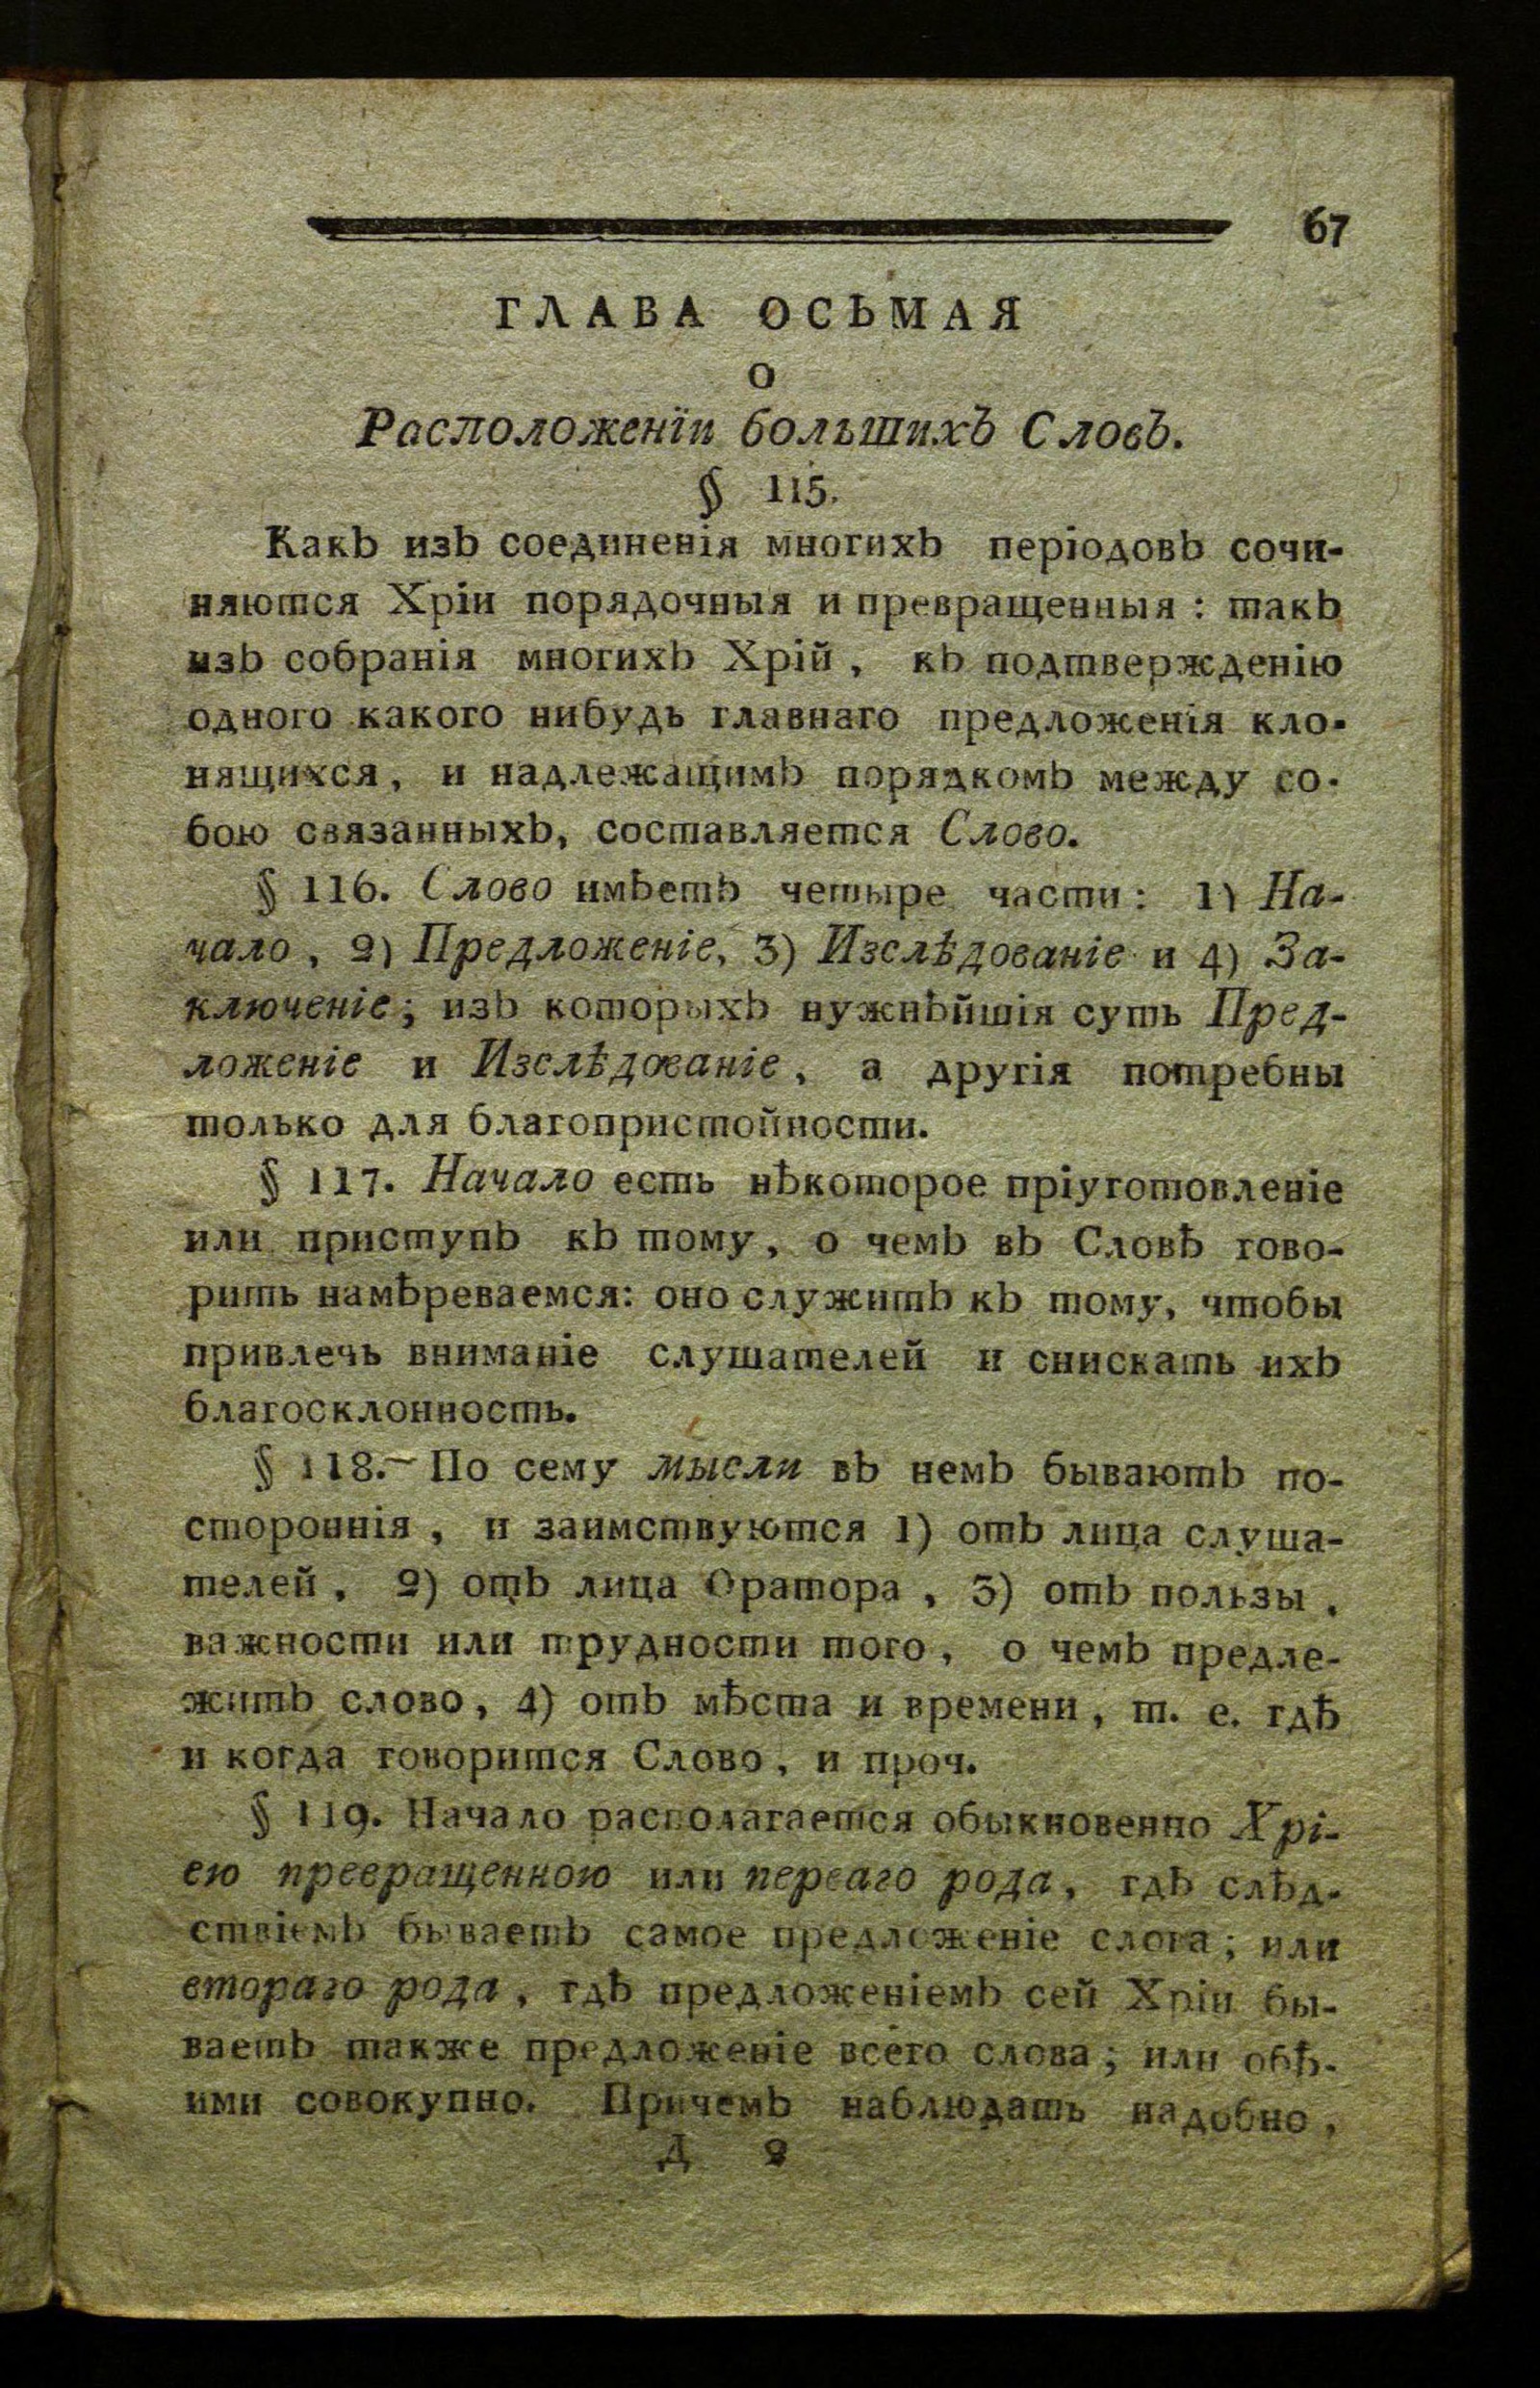 67
ГЛАВА ОСЬМАЯ
О
Расположеніи большихъ Словъ.
§ 115.
Какъ изъ соединенія многихъ періодовъ сочи-
няются Хріи порядочныя и превращенныя : такъ
изъ собранія многихъ Хрій , къ подтвержденію
одного какого нибудь главнаго предложенія кло-
нящихся, и надлежащимъ порядкомъ между со-
бою связанныхъ, составляется Слово.
§ 116. Слово имѣетъ четыре части: 1) На-
чало , 2) Предложеніе, 3) Изслѣдованіе и 4) За-
ключеніе; изъ которыхъ нужнѣйшія суть Пред-
ложеніе и Изслѣдованіе , а другія потребны
только для благопристойности.
§ 117. Начало есть нѣкоторое пріуготовленіе
или приступъ къ тому, о чемъ въ Словѣ гово-
рить намѣреваемся: оно служитъ къ тому, чтобы
привлечь вниманіе слушателей и снискать ихъ
благосклонность.
§ 118. По сему мысли въ немъ бываютъ по-
стороннія , и заимствуются 1) отъ лица слуша-
телей , 2) отъ лица Оратора , 3) отъ пользы ,
важности или трудности того, о чемъ предле-
житъ слово, 4) отъ мѣста и времени, т. е. гдѣ
и когда говорится Слово, и проч.
§ 119. Начало располагается обыкновенно Хрі-
ею превращенною или перваго рода, гдѣ слѣд-
ствіемъ бываетъ самое предложеніе слова; или
втораго рода , гдѣ предложеніемъ сей Хріи бы-
ваетъ также предложеніе всего слова; или обѣ-
ими совокупно. Причемъ наблюдать надобно,
Д 2